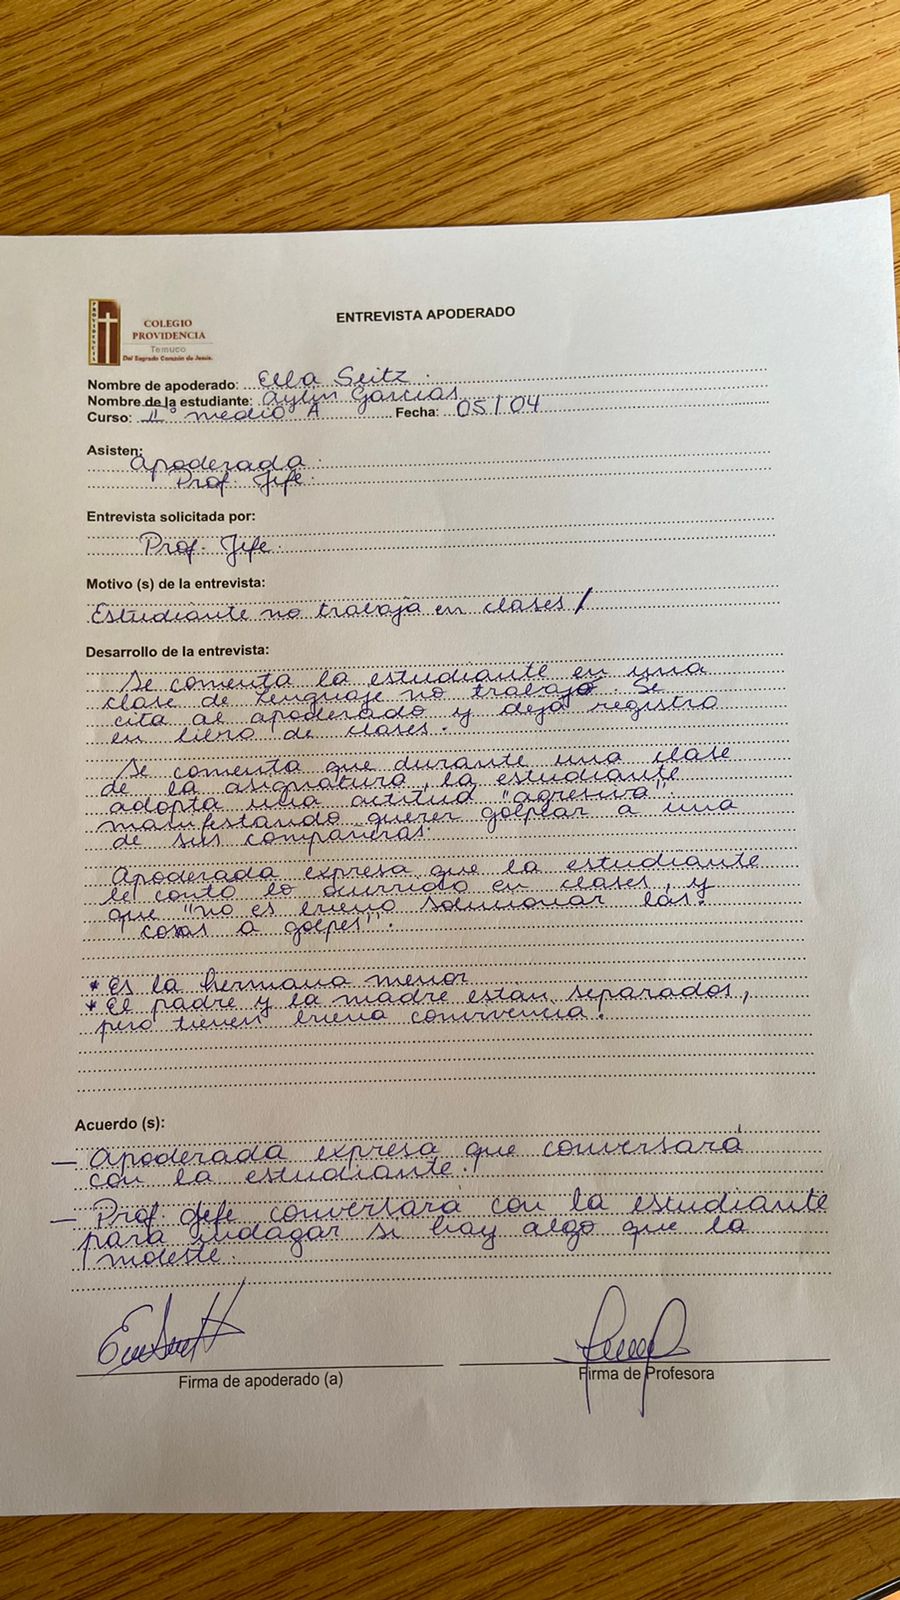 ENTREVISTA APODERADO
PROVIDENCIA
COLEGIO
PROVIDENCIA
Temuco
Del Sagrado Corazón de Jesús.
Nombre de apoderado: Ella Seitz.
Nombre de la estudiante: Aylin Garcias
Curso: II° medio A Fecha: 05/04
Asisten:
Apoderada
Prof. Jefe.
Entrevista solicitada por:
Prof. Jefe.
Motivo (s) de la entrevista:
Estudiante no trabaja en clases /
Desarrollo de la entrevista:
Se comenta la estudiante en una
clase de Lenguaje no trabajó. Se
cita al apoderado y deja registro
en libro de clases.
Se comenta que durante una clase
de la asignatura, la estudiante
adopta una actitud "agresiva".
manifestando querer golpear a una
de sus compañeras.
Apoderada expresa que la estudiante
le contó lo ocurrido en clases, y
que "no es bueno solucionar las
cosas a golpes".
* Es la hermana menor
* El padre y la madre están separados,
pero tienen buena convivencia.
Acuerdo (s):
— Apoderada expresa que conversará
con la estudiante.
— Prof. Jefe conversará con la estudiante
para indagar si hay algo que la
moleste.
Firma de apoderado (a) Firma de Profesora